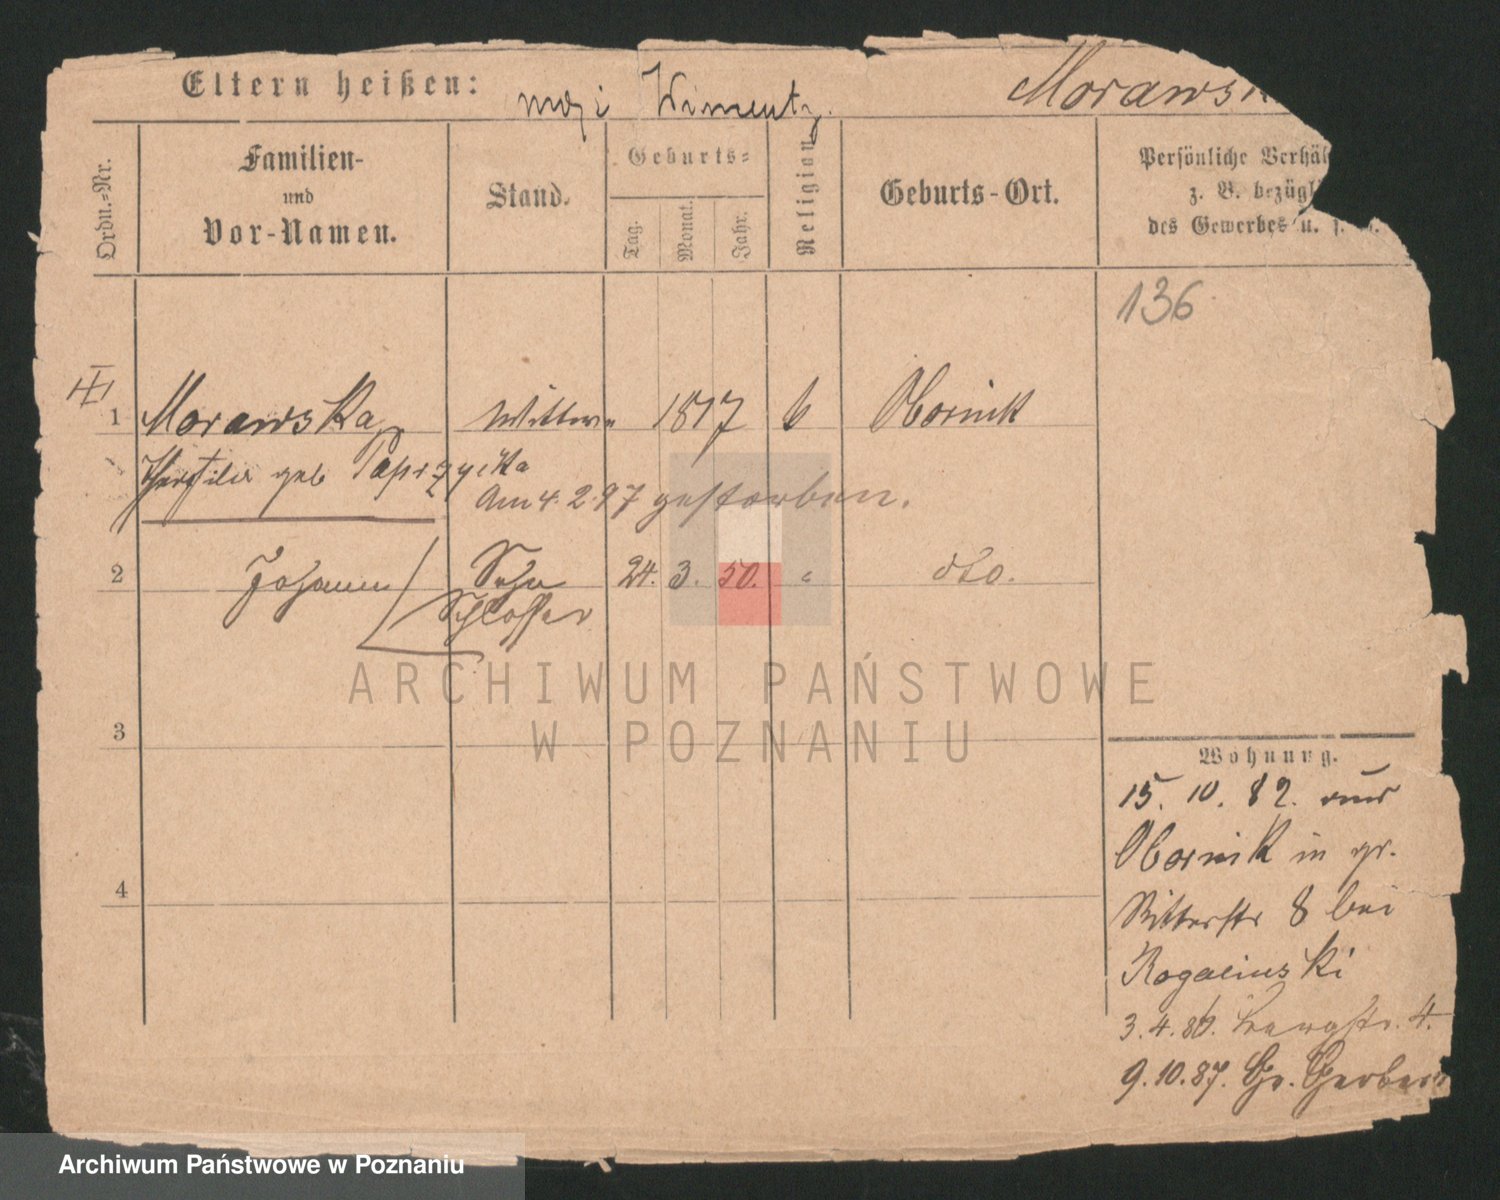 Eltern heißen:
Morawsk
Ordn.-Nr.
Familien-
und
Vor-Namen.
Stand.
Geburts-
Tag.
Monat.
Jahr.
Religion
Geburts-Ort.
Persönliche Verhäl
z. B. bezügl
des Gewerbes u. s.
136
1 Morawska Wittwe 1817 k Obornik
geb Paprzycka
Am 4. 2. 97 gestorben.
2 Johann Sohn 24. 3. 50. " dto.
Schlosser
3
4
Wohnung.
15. 10. 82. aus
Obornik in gr.
Ritterstr 8 bei
Rogalinski
3. 4. 86. 4.
9. 10. 87. Gr. Gerber
ARCHIWUM PAŃSTWOWE
W POZNANIU
Archiwum Państwowe w Poznaniu